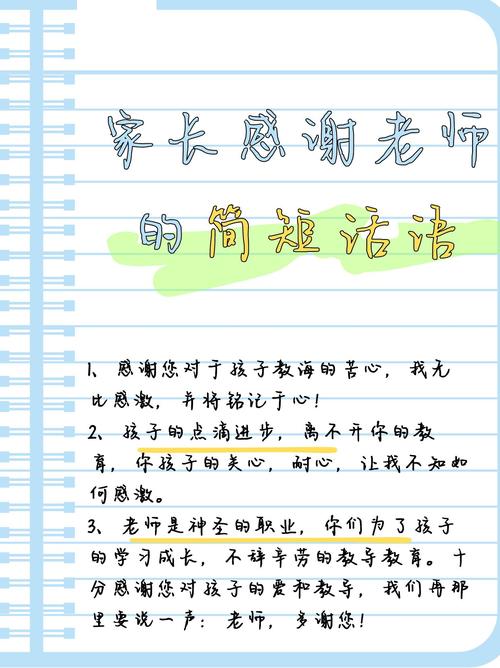 家长感谢老师
的简短话语
1、感谢您对于孩子教海的苦心，我无
比感激，并将铭记于心！
2、孩子的点滴进步，离不开你的教
育，你孩子的关心，耐心，让我不知如
何感激。
3、老师是神圣的职业，你们为了孩子
的学习成长，不辞辛劳的教导教育。十
分感谢您对孩子的爱和教导，我们再那
里要说一声：老师，多谢您！